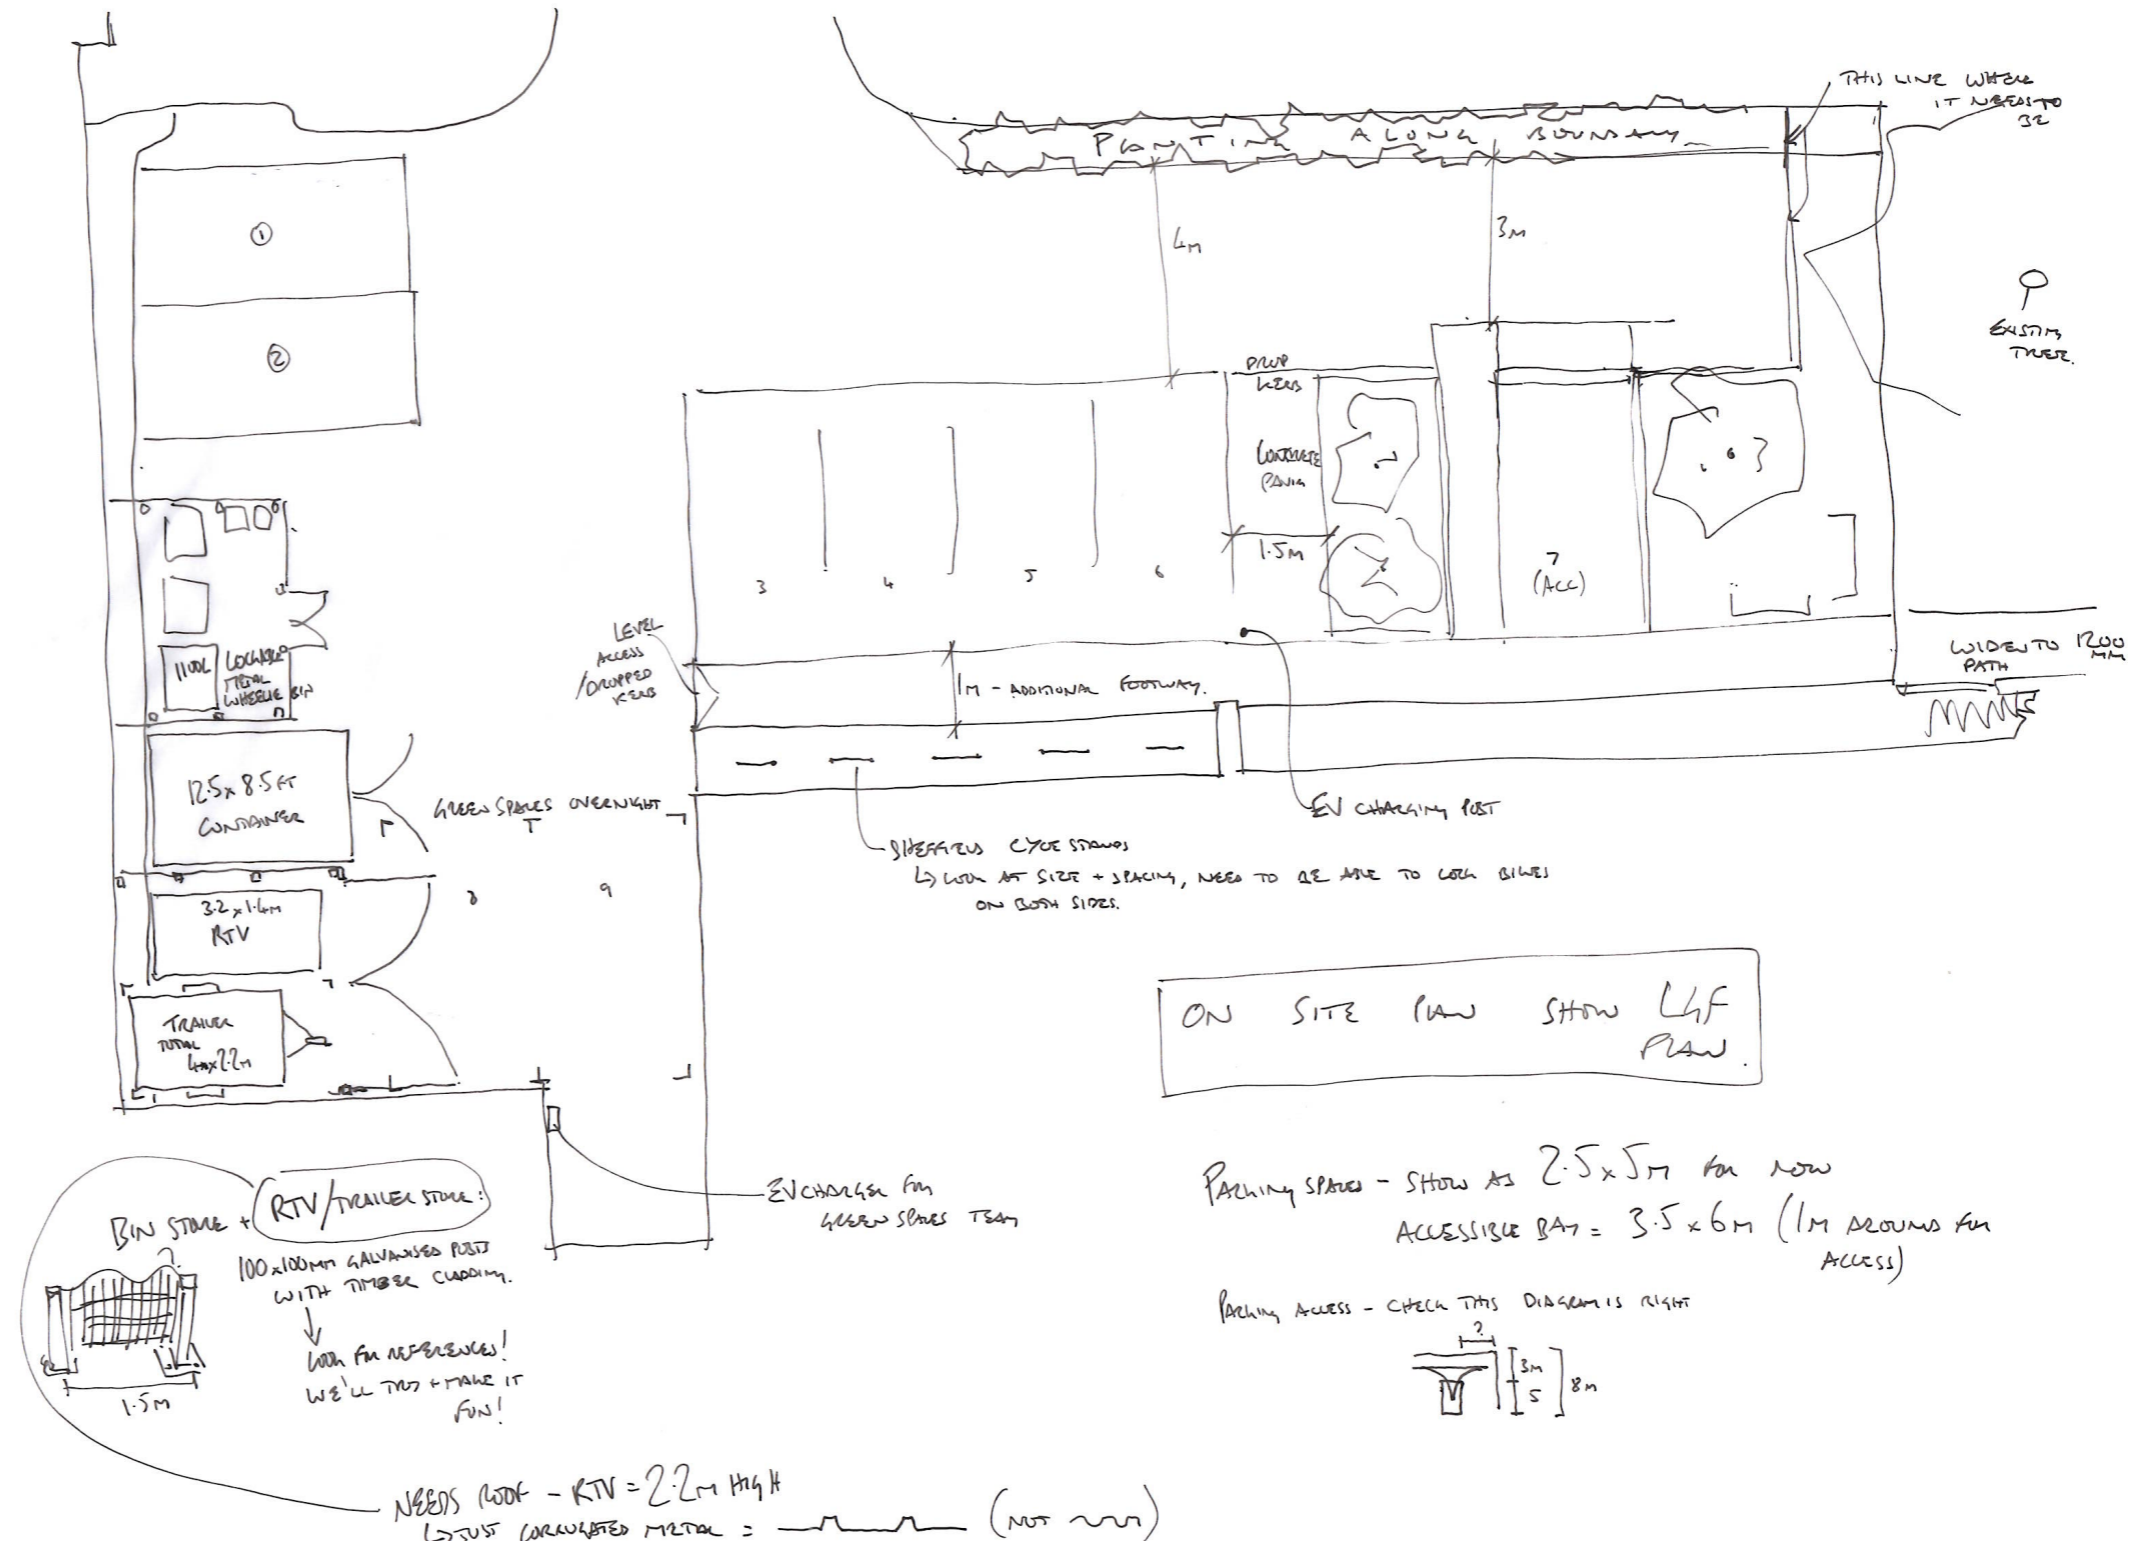 THIS LINE WHERE
IT NEEDS TO
BE
PLANTING ALONG BOUNDARY
①
4M
3M
EXISTING
TREE.
②
DROP
KERB
CONCRETE
PAVING
1.5M
3
4
5
6
7
(ACC)
LEVEL
ACCESS
/DROPPED
KERB
1100L
LOCKABLE
METAL
WHEELIE BIN
1M - ADDITIONAL FOOTWAY.
WIDEN TO 1200
MM
PATH
12.5 x 8.5 FT
CONTAINER
GREEN SPACES OVERNIGHT
EV CHARGING POST
SHEFFIELD CYCLE STANDS
↳ LOOK AT SIZE + SPACING, NEED TO BE ABLE TO LOCK BIKES
ON BOTH SIDES.
3.2 x 1.4M
RTV
8
9
TRAILER
TOTAL
4M x 2.2M
ON SITE PLAN SHOW LGF
PLAN.
EV CHARGER FOR
GREEN SPACES TEAM
BIN STORE + RTV/TRAILER STORE:
?
100x100MM GALVANISED POSTS
WITH TIMBER CLADDING.
LOOK FOR REFERENCES!
WE'LL TRY + MAKE IT
FUN!
1.5M
PARKING SPACES - SHOW AS 2.5 x 5M FOR NOW
ACCESSIBLE BAY = 3.5 x 6M (1M AROUND FOR
ACCESS)
PARKING ACCESS - CHECK THIS DIAGRAM IS RIGHT
?
3M
5
8M
NEEDS ROOF - RTV = 2.2M HIGH
↳ JUST CORRUGATED METAL = (NOT